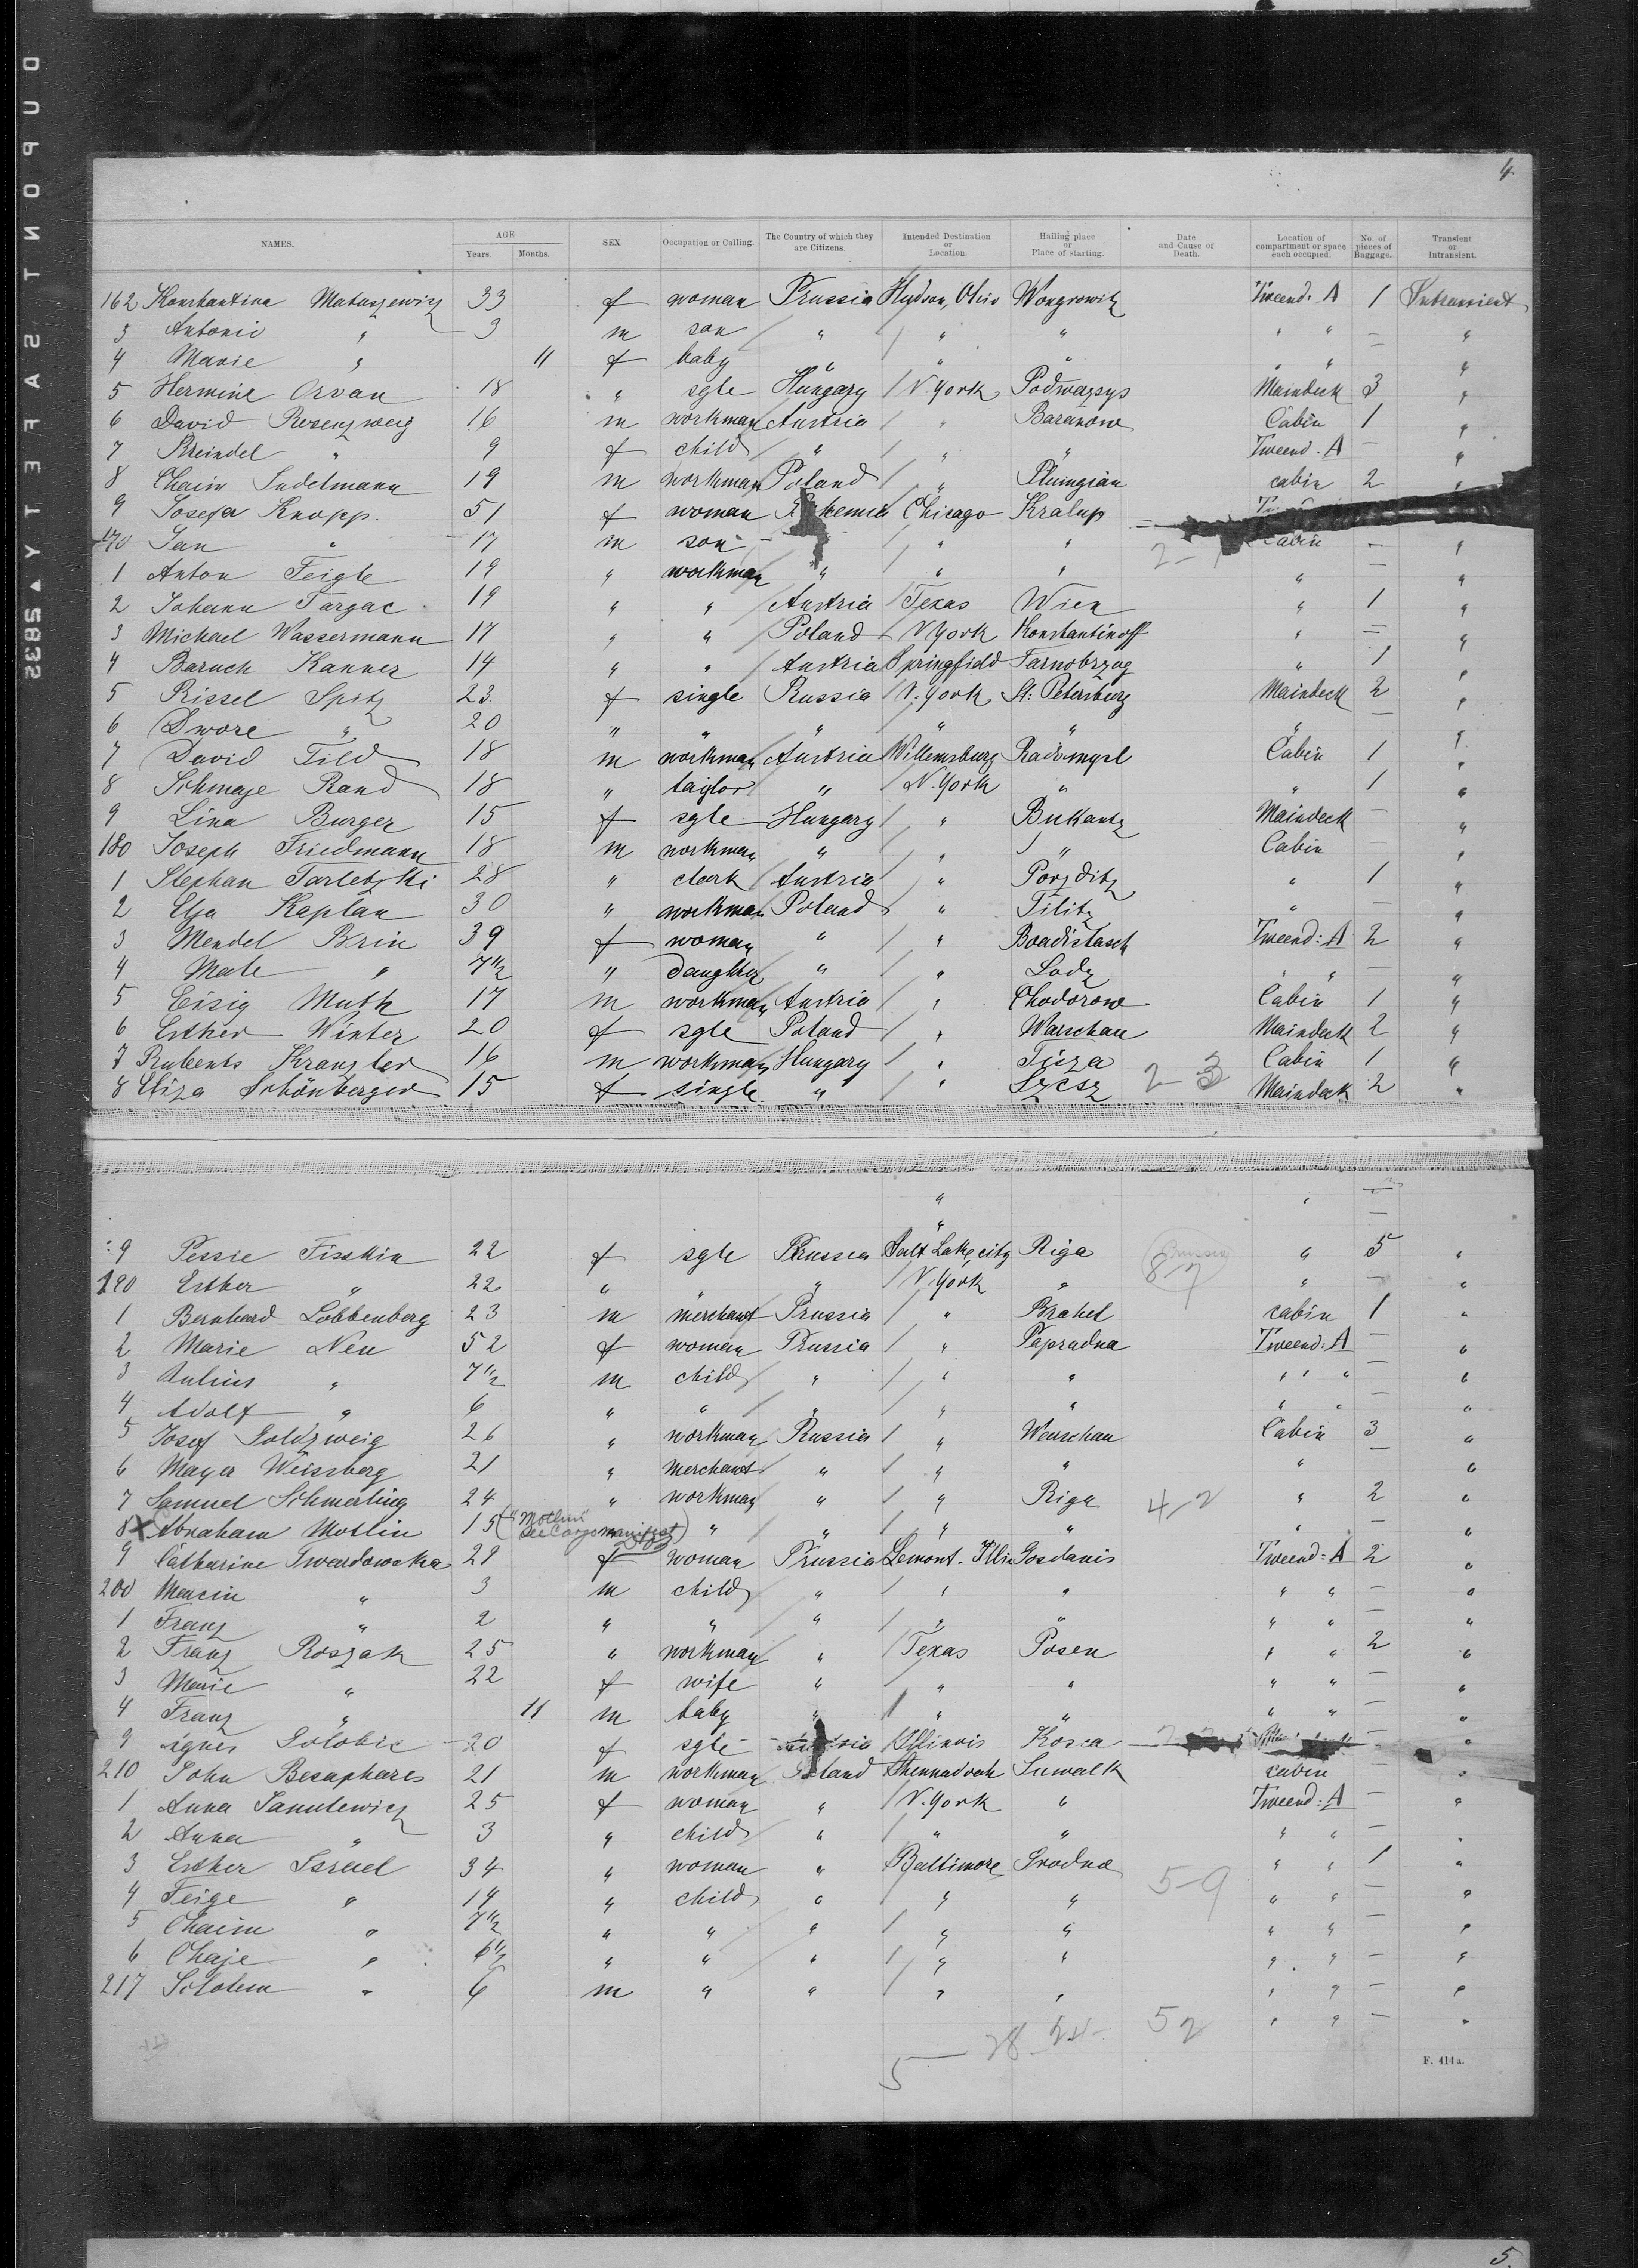 DUPONT SAFETY 58322
4.
NAMES. AGE Years. Months. SEX Occupation or Calling. The Country of which they are Citizens. Intended Destination or Location. Hailing place or Place of starting. Date and Cause of Death. Location of compartment or space each occupied. No. of pieces of Baggage. Transient or Intransient.
162 Konstantina Matuszewicz 33 f woman Prussia Hudson, Ohio Wongrowitz Tweend: A 1 Intransient
3 Antonie " 3 m son " " " " " — "
4 Marie " 11 f baby " " " " " "
5 Hermine Orvan 18 " sgle Hungary N. York Maindeck 3 "
6 David Rosenzweig 16 m workman Austria " Baranow Cabin 1 "
7 Breindel " 9 f child " " " Tweend. A — "
8 Chaim Sudelmann 19 m workman Poland " Plumgian cabin 2 "
9 Josefa Knopp. 51 f woman Chicago Kralup
170 Jan " 17 m son " " " cabin — "
1 Anton Feigle 19 " workman " " " " — "
2 Johann Targac 19 " " Austria Texas Wien " 1 "
3 Michael Wassermann 17 " " Poland N. York Konstantinoff " — "
4 Baruch Kanner 14 " " Austria Springfield Tarnobrzog " 1 "
5 Rissel Spitz 23 f single Russia N. York St: Petersburg Maindeck 2 "
6 Dwore " 20 " " " " " " — "
7 David Fild 18 m workman Austria Willemsburg Radomysl Cabin 1 "
8 Schmaje Rand 18 " taylor " N. York " " 1 "
9 Lina Burger 15 f sgle Hungary " Bukantz Maindeck — "
180 Joseph Friedmann 18 m workman " " " Cabin — "
1 Stephan Tarletzki 28 " clerk Austria " Porzditz " 1 "
2 Elja Kaplan 30 " workman Poland " Filitz " — "
3 Mendel Brin 39 f woman " " Boadistasch Tweend: A 2 "
4 Male " 7½ " daughter " " Lodz " " — "
5 Eisig Muth 17 m workman Austria " Chodorow Cabin 1 "
6 Esther Winter 20 f sgle Poland " Warschau Maindeck 2 "
7 Rubents Kranzler 16 m workman Hungary " Tisza 2-3 Cabin 1 "
8 Eliza Schönberger 15 f single " " Szesz Maindeck 2 "
" " —
" —
9 Pessie Fisskin 22 f sgle Russia Salt Lake city Riga 8-7 " 5 "
190 Esther " 22 " " " N. York " " — "
1 Bernhard Löbbenberg 23 m merchant Prussia " Brakel cabin 1 "
2 Marie Neu 52 f woman Prussia " Papradna Tweend: A — "
3 Julius " 7½ m child " " " " " — "
4 Adolf " 6 " " " " " " " — "
5 Josef Goldzweig 26 " workman Russia " Warschau Cabin 3 "
6 Mayer Weissberg 21 " merchant " " " " — "
7 Samuel Schmerling 24 " workman " " Riga 4-2 " 2 "
8 X Abraham Motlin 15 ("Motlin" See Cargo manifest) " " " " " — "
9 Catharine Twardowska 29 f woman Prussia Lemont. Illi Gosdanis Tweend: A 2 "
200 Marcin " 3 m child " " " " " — "
1 Franz " 2 " " " " " " " — "
2 Franz Roszak 25 " workman " Texas Posen " " 2 "
3 Marie " 22 f wife " " " " " — "
4 Franz " 11 m baby " " " " " — "
9 Agnes Golobic 20 f sgle Illinois Kosca — "
210 John Besaphares 21 m workman Poland Shennadoah Suwalk cabin "
1 Anna Janulewicz 25 f woman " N. York " Tweend: A — "
2 Anna " 3 " child " " " " " — "
3 Esther Israel 34 " woman " Baltimore Grodno 5-9 " " 1 "
4 Feige " 19 " child " " " " " — "
5 Chaim " 7½ " " " " " " " — "
6 Chaje " 6½ " " " " " " " — "
217 Scholem " 6 m " " " " " " — "
5 — 28 24 52 " " — "
F. 414a.
5.